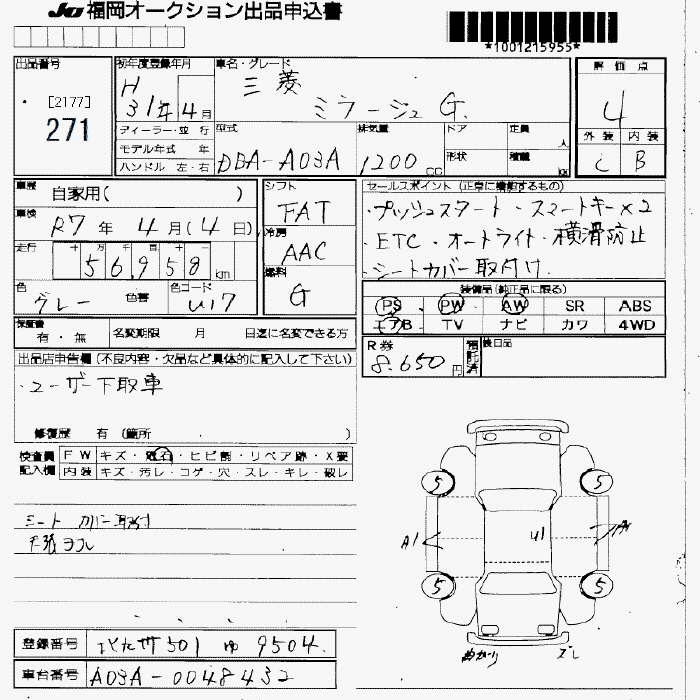 JU 福岡オークション出品申込書
*1001215955*
出品番号
[2177]
271
初年度登録年月
H
31年4月
車名・グレード
三菱
ミラージュ G.
評価点
4
外装 内装
C B
ディーラー・並行
モデル年式 年
ハンドル 左・右
型式
DBA-A03A
排気量
1200 CC
ドア
形状
定員
人
積載
kg
車歴
自家用( )
車検
R7年 4月(4日)
走行
十 万 千 百 十
56958 km
色
グレー
色替
色コード
U17
シフト
FAT
冷房
AAC
燃料
G
セールスポイント (正常に機能するもの)
・プッシュスタート・スマートキー×2
・ETC・オートライト・横滑防止
・シートカバー取付け.
装備品(純正品に限る)
PS PW AW SR ABS
エアB TV ナビ カワ 4WD
保証書
有・無
名変期限 月 日迄に名変できる方
R券
8.650円
預託済
後日品
出品店申告欄 (不良内容・欠品など具体的に記入して下さい)
・ユーザー下取車
修復歴 有 (箇所 )
検査員
記入欄
FW キズ・飛石・ヒビ割・リペア跡・X要
内装 キズ・汚レ・コゲ・穴・スレ・キレ・破レ
シート カバー取付
天張ヨゴレ
5 5
A1 U1
5 5
登録番号
501 ゆ 9504.
車台番号
A03A-0048432